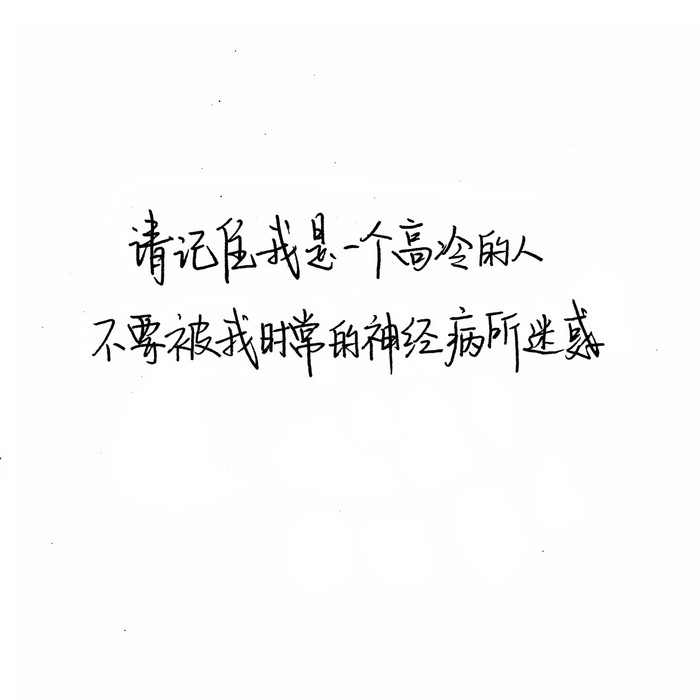 请记住我是一个高冷的人
不要被我时常的神经病所迷惑